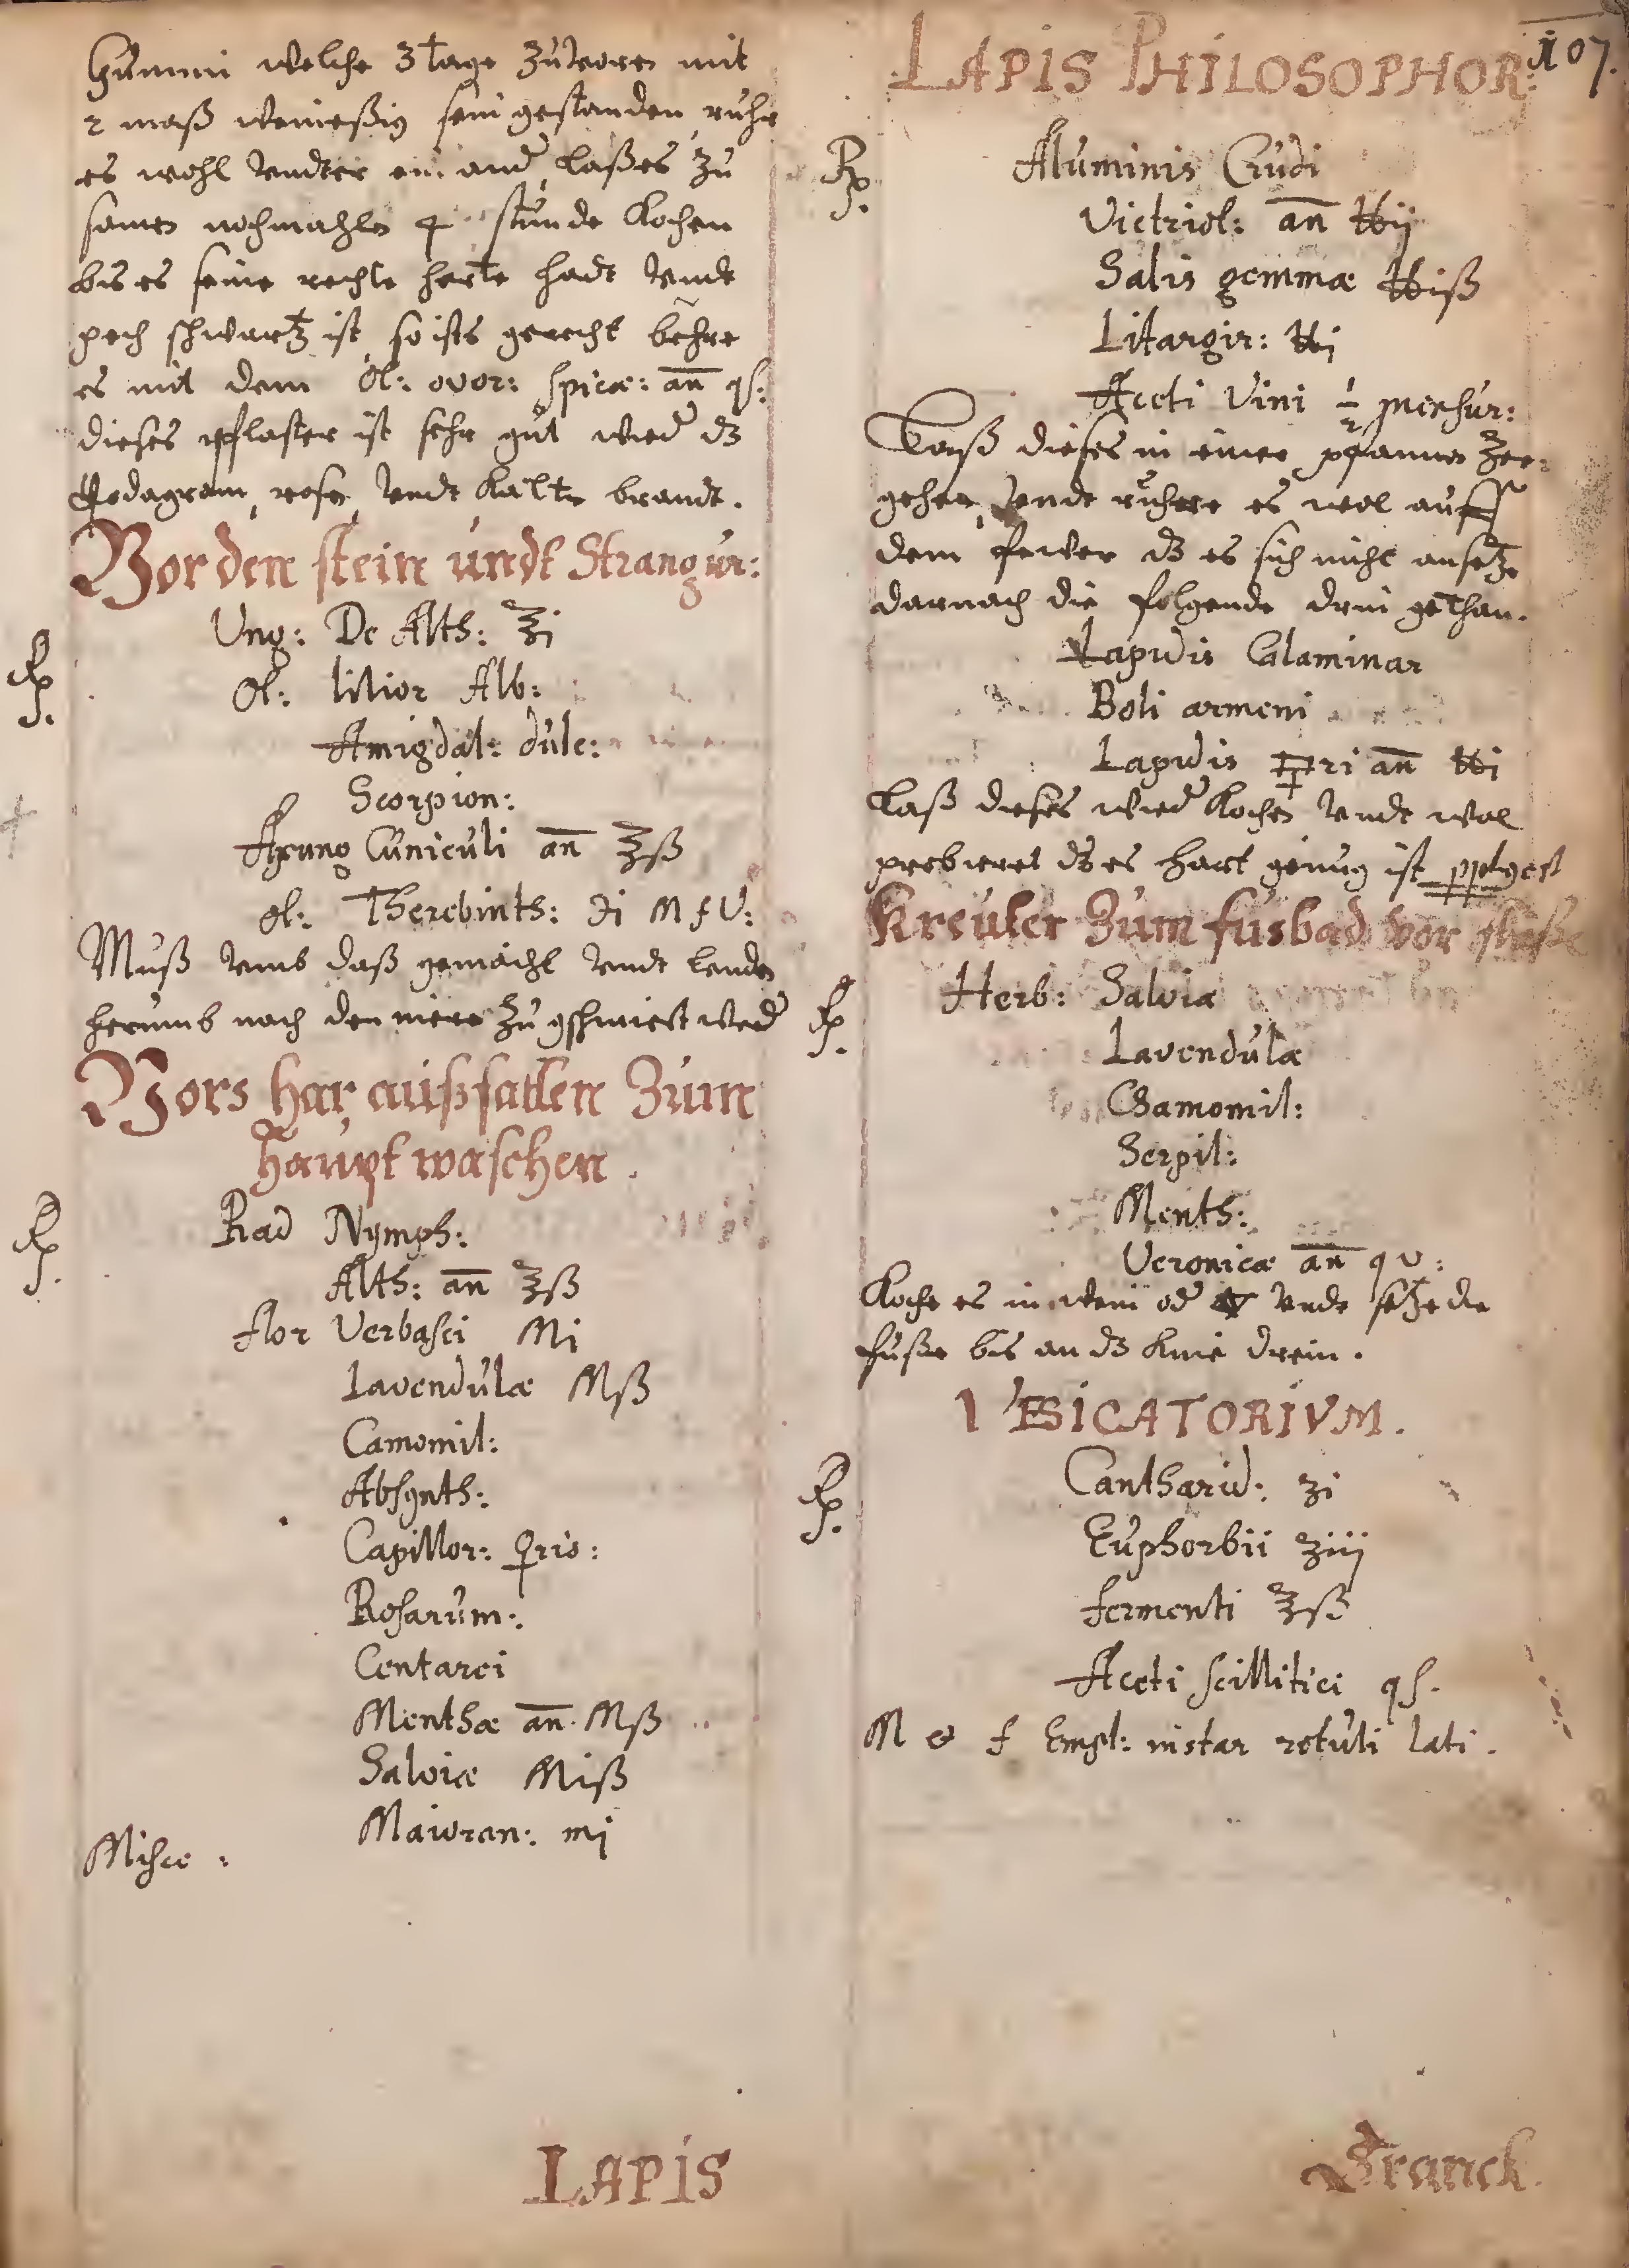 Gummi welche 3 tage zuvorn mit
2 maß weineßig sein gestanden, ruhr
es wohl undter ein and, laßes zu
samen nochmahln 4 stunde kochen
bis es seine rechte herte hadt undt
pech schwartz ist, so ists gerecht
es mit dem Ol: ovor: spicæ: an̄ qs:
dieses pflaster ist sehr gut wied dz
Podagram, rosen, undt kalten brandt.
Vor den stein undt Strangur:
℞. Ung: De Alth: ℥i
Ol: lilior Alb:
Amigdal: dulc:
Scorpion:
Axung Cuniculi an̄ ℥ß
Ol: Therebinth: ʒi M f U:
Muß umb daß gemächt undt lenden
herumb nach den niere zu gschmiert werd
Vors har außfallen Zum
haupt waschen.
℞. Rad Nymph:
Alth: an̄ ℥ß
flor Verbasci Mi
Lavendulæ Mß
Camomil:
Absynth:
Capillor: ♀ris:
Rosarum:
Centarei
Menthæ an̄. Mß
Salviæ Miß
Maioran: mi
Misce:
LAPIS
LAPIS PHILOSOPHOR: 107.
℞. Aluminis Crudi
Victriol: an̄ ℔ij
Salis gemmæ ℔iß
Litargir: ℔i
Aceti Vini ½ mensur:
Laß dieses in einer pfannen zer-
gehen, undt ruhre es wol auff
dem fewer dz es sich nicht ansetze
darnach die folgende drin gethan.
Lapidis Calaminar
Boli armeni
Lapidis ri an̄ ℔i
laß dieses wied kochen undt wol
probieret dz es hart genug ist
Kreuter Zum fusbad vor
℞. Herb: Salviæ
Lavendulæ
Chamomil:
Serpil:
Menth:
Veronicæ an̄ q v:
Koche es in wein od 🜄 undt setze die
fuße bis an dz knie drein.
VESICATORIVM.
℞. Cantharid: ʒi
Euphorbii ʒiij
fermenti ℥ß
Aceti scillitici qs.
M & f Empl: instar rotuli lati.
Franck